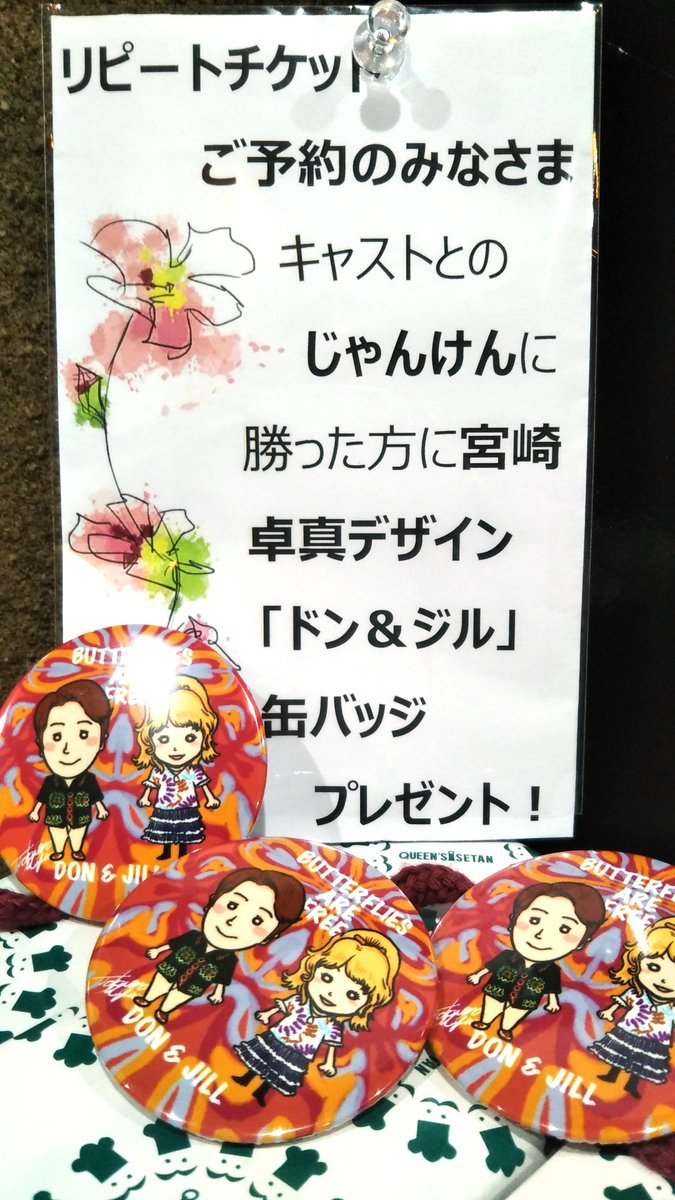 リピートチケット
ご予約のみなさま
キャストとの
じゃんけんに
勝った方に宮崎
卓真デザイン
「ドン＆ジル」
缶バッジ
プレゼント！
BUTTERFLIES
ARE
FREE
DON & JILL
QUEEN'S ISETAN
BUTTERFLIES
ARE
FREE
DON & JILL
BUTTERFLIES
ARE
FREE
DON & JILL